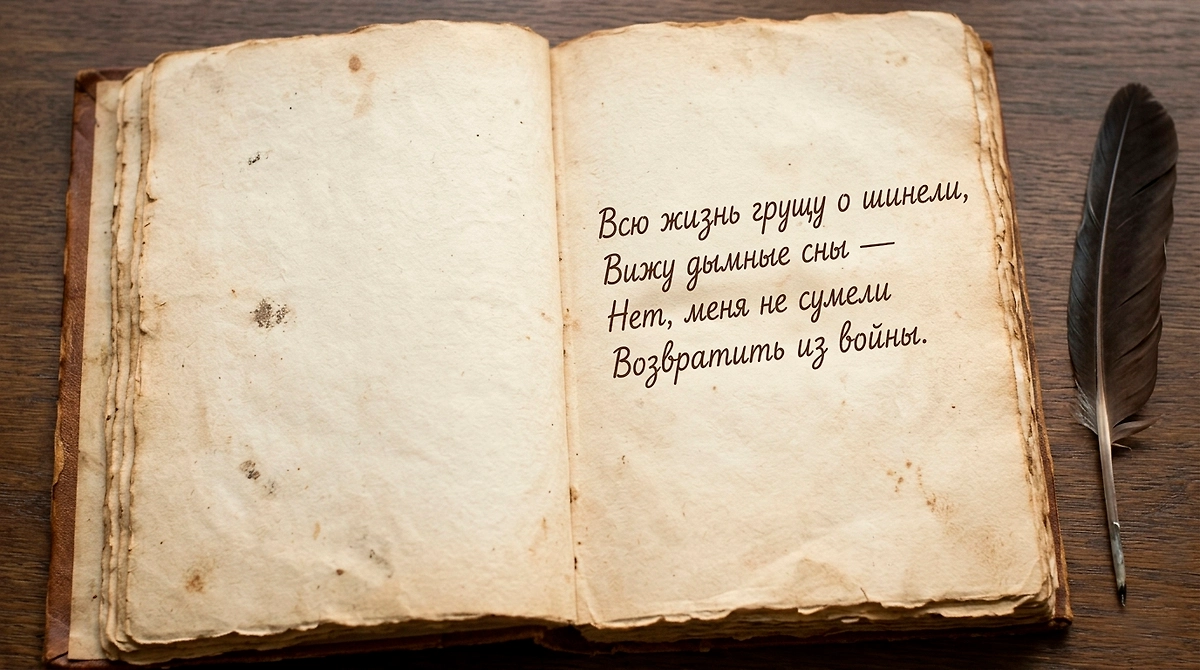 Всю жизнь грущу о шинели,
Вижу дымные сны —
Нет, меня не сумели
Возвратить из войны.